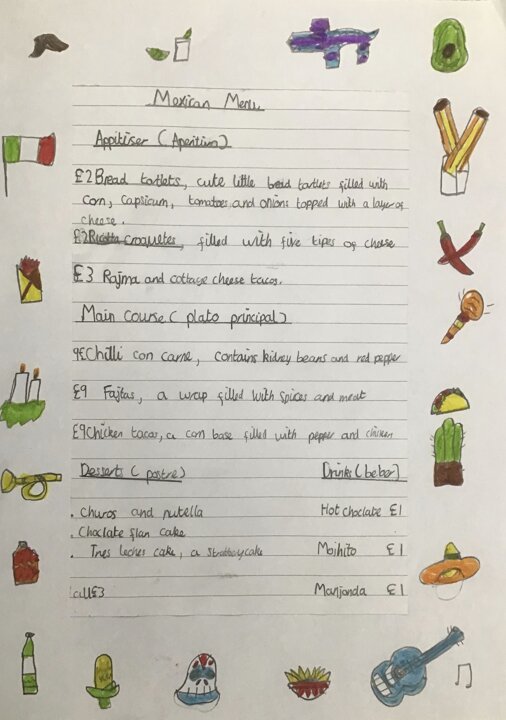 Mexican Menu
Appitiser (Aperitivo)
£2 Bread tartlets, cute little bead tartlets filled with
corn, capsicum, tomatoes and onions topped with a layer of
cheese.
£2 Ricotta croquetes, filled with five tipes of cheese
£3 Rajma and cottage cheese tacos.
Main course ( plato principal)
9£ Chilli con carne, contains kidney beans and red pepper
£9 Fajitas, a wrap filled with spices and meat
£9 Chicken tacos, a corn base filled with pepper and chicken
Desserts (postre) Drinks (beber)
. Churos and nutella Hot choclate £1
. Choclate flan cake
. Tres leches cake, a cake Mojhito £1
all £3 Manjonda £1